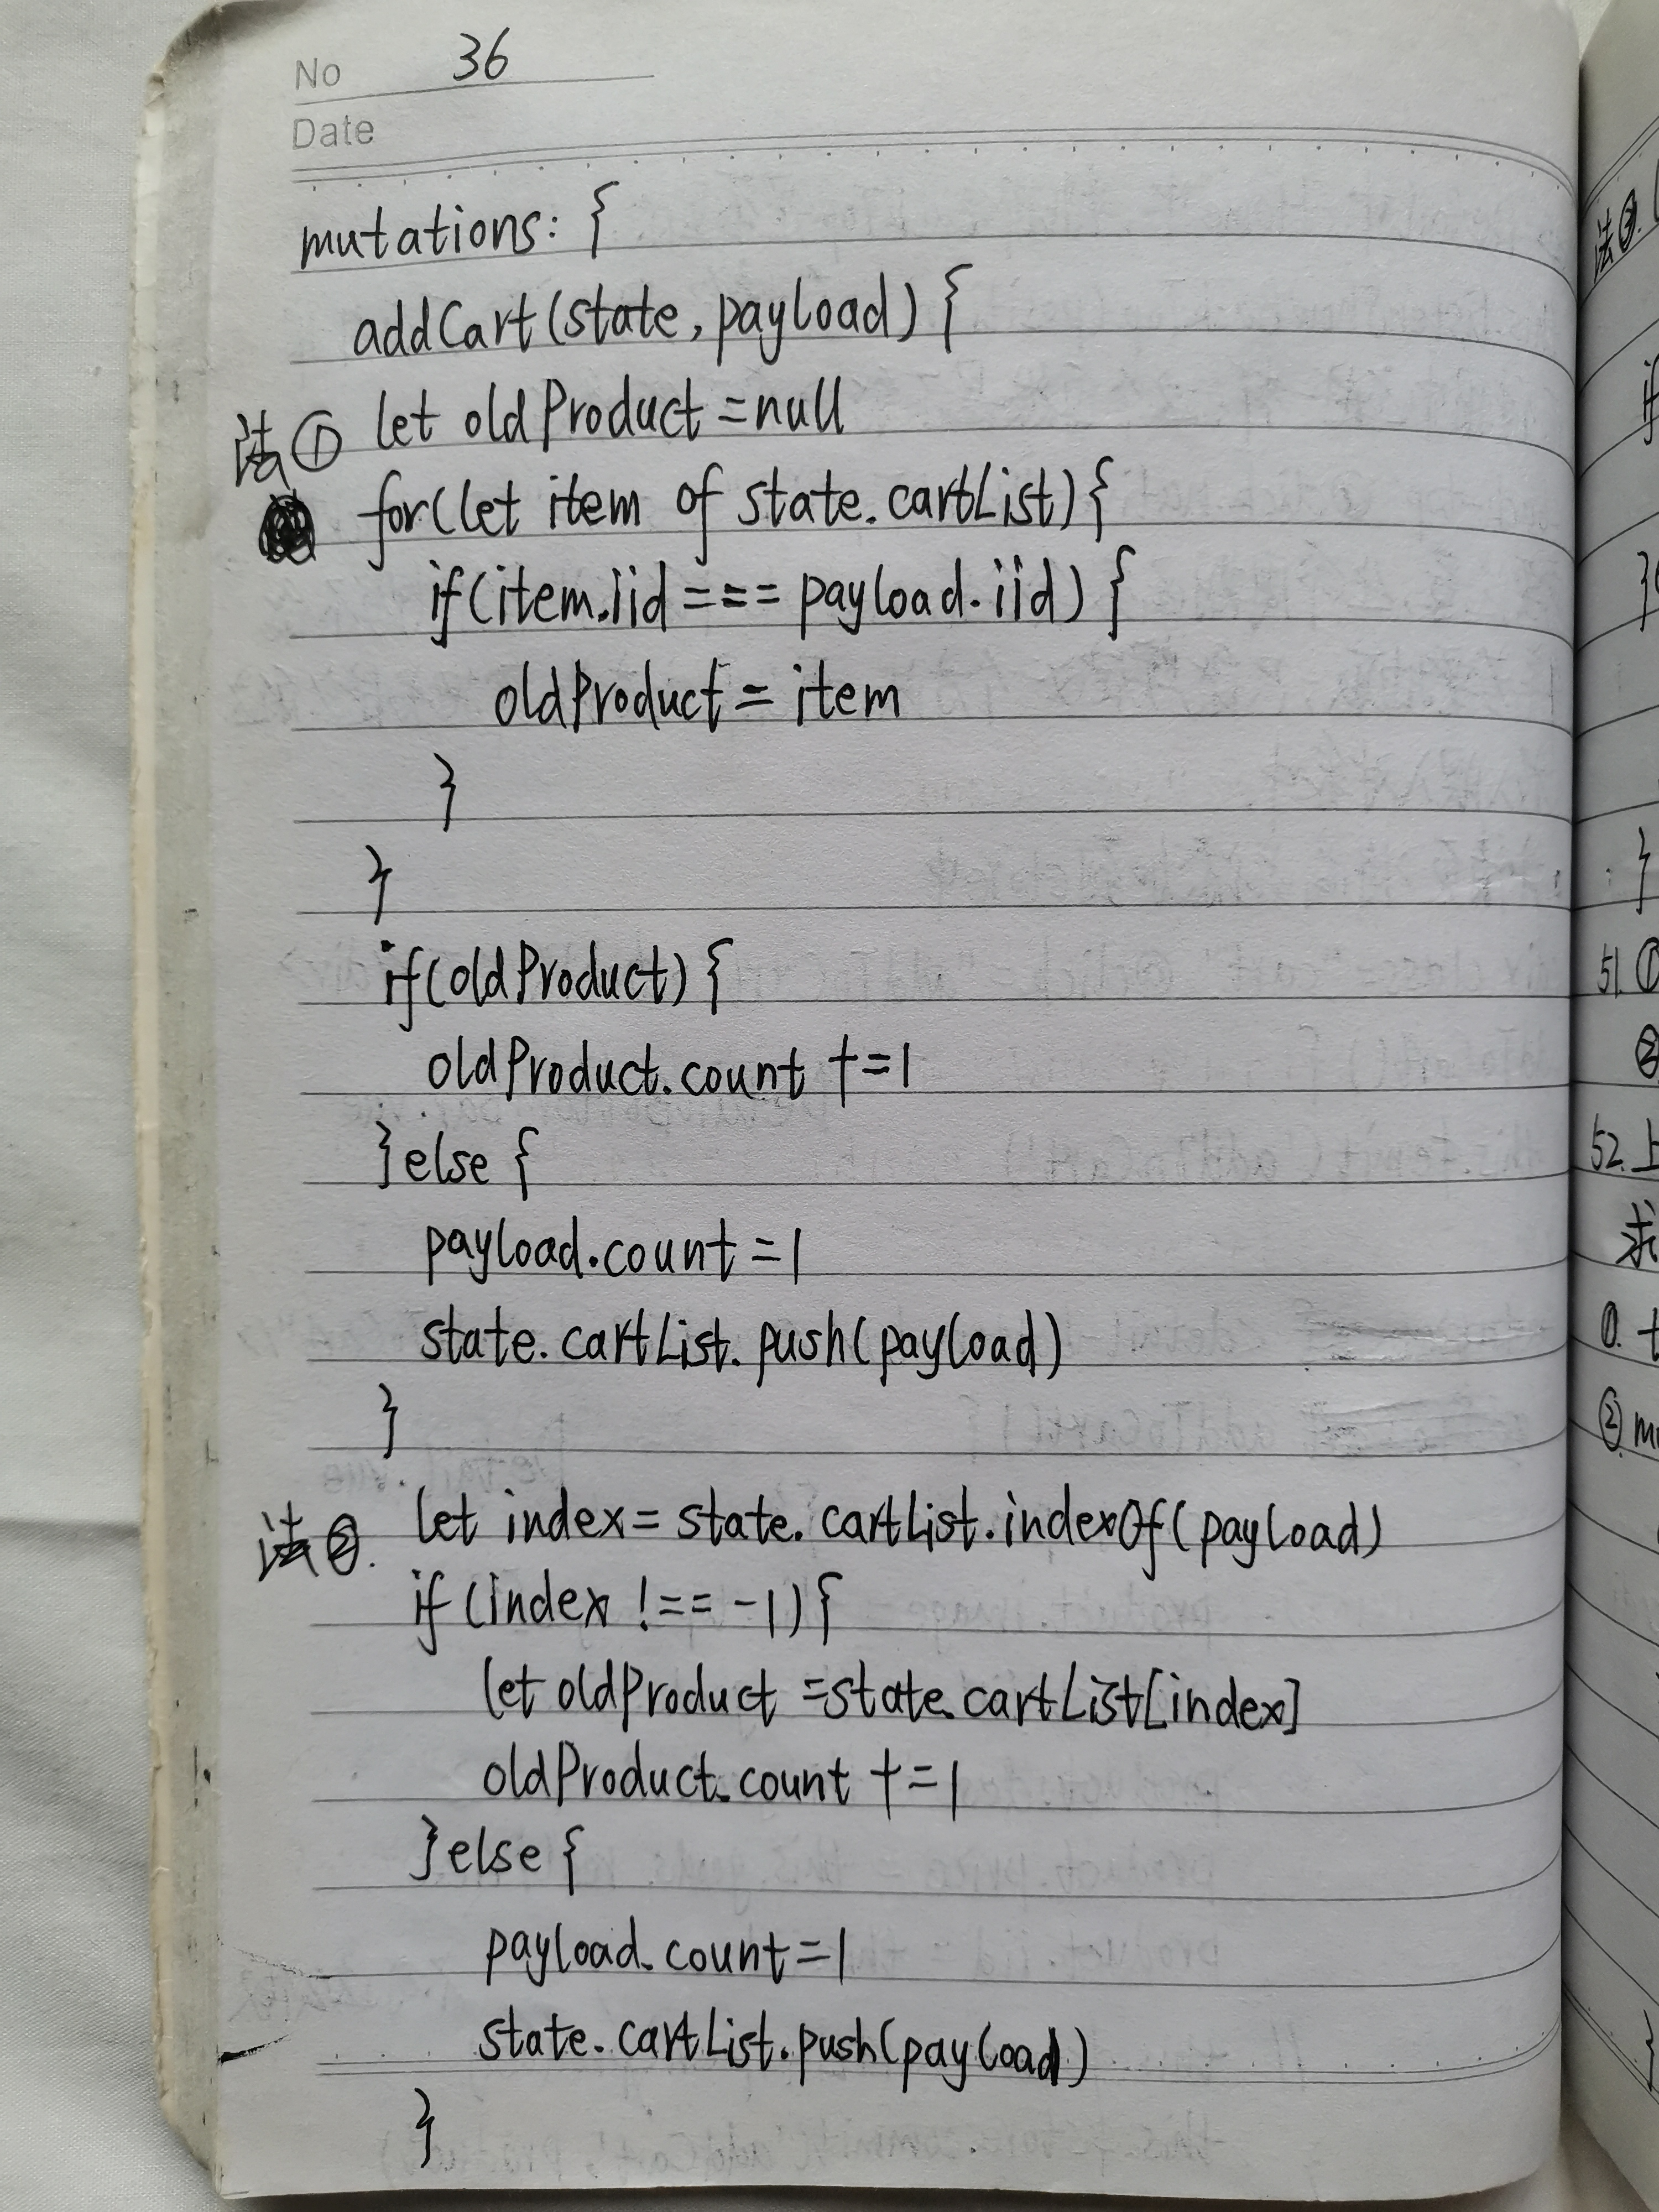 No 36
Date
mutations: {
addCart(state, payload) {
法① let oldProduct = null
for(let item of state.cartList){
if(item.iid === payload.iid) {
oldProduct = item
}
}
if(oldProduct) {
oldProduct.count +=1
}else {
payload.count =1
state.cartList.push(payload)
}
法②. let index = state.cartList.indexOf(payload)
if (index !== -1) {
let oldProduct = state.cartList[index]
oldProduct.count +=1
}else {
payload.count =1
state.cartList.push(payload)
}
法③.
if
}
}
51. ①
②
52. 上
求
①. t
② m
}